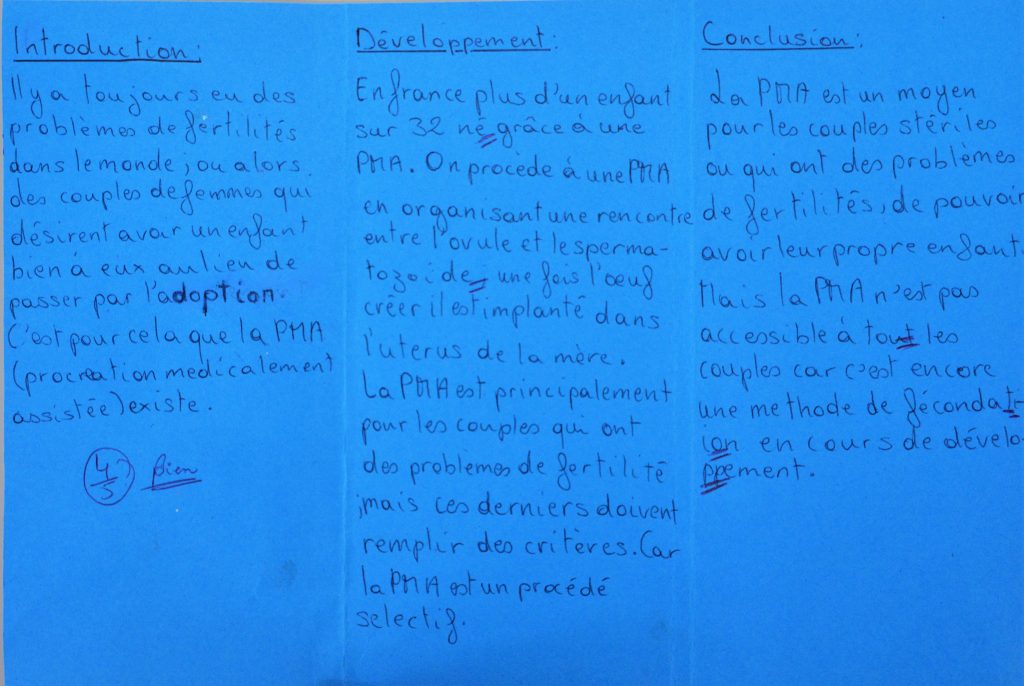 Introduction:
Il y a toujours eu des
problèmes de fertilités
dans le monde, ou alors
des couples de femmes qui
désirent avoir un enfant
bien à eux au lieu de
passer par l'adoption.
C'est pour cela que la PMA
(procreation medicalement
assistée) existe.
4/5 Bien
Développement:
En france plus d'un enfant
sur 32 né grâce à une
PMA. On procède à une PMA
en organisant une rencontre
entre l'ovule et le sperma-
tozoide, une fois l'oeuf
créer il est implanté dans
l'uterus de la mère.
La PMA est principalement
pour les couples qui ont
des problèmes de fertilité
,mais ces derniers doivent
remplir des critères. Car
la PMA est un procédé
selectif.
Conclusion:
La PMA est un moyen
pour les couples stériles
ou qui ont des problèmes
de fertilités, de pouvoir
avoir leur propre enfant.
Mais la PMA n'est pas
accessible à tout les
couples car c'est encore
une methode de fécondati-
ion en cours de dévelo-
ppement.